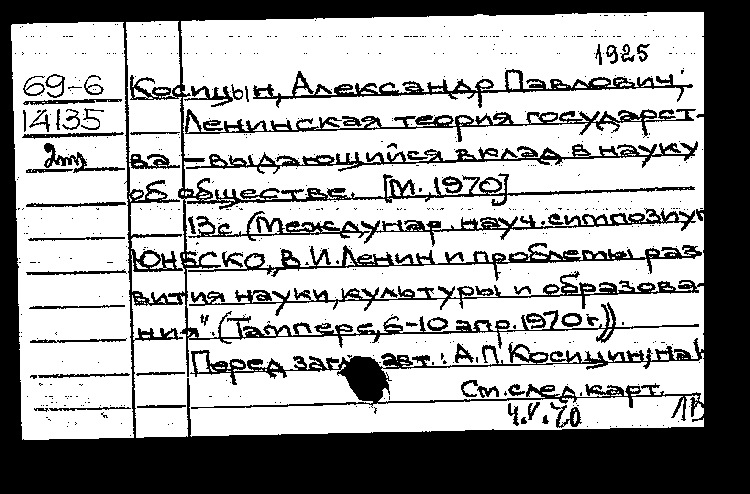 1925
69-6 Косицын, Александр Павлович,
14135 Ленинская теория государст-
2т ва — выдающийся вклад в науку
об обществе. [М., 1970]
13с. (Междунар. науч. симпозиум
ЮНЕСКО „В.И. Ленин и проблемы раз-
вития науки, культуры и образова-
ния". (Тампере, 6-10 апр. 1970г.)).
Перед загл. авт.: А.П. Косицин;
См. след. карт.
4.V.70